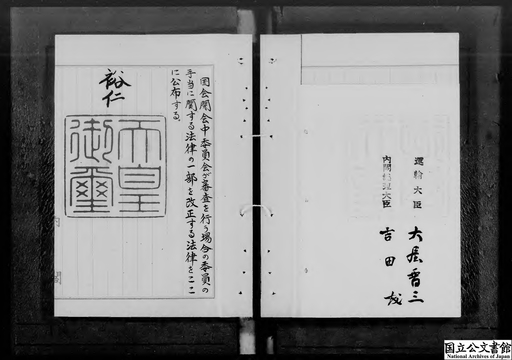 国会閉会中委員会が審査を行う場合の委員の
手当に関する法律の一部を改正する法律をここ
に公布する
裕仁
天皇
御璽
運輸大臣
大屋晋三
内閣総理大臣
吉田茂
国立公文書館
National Archives of Japan